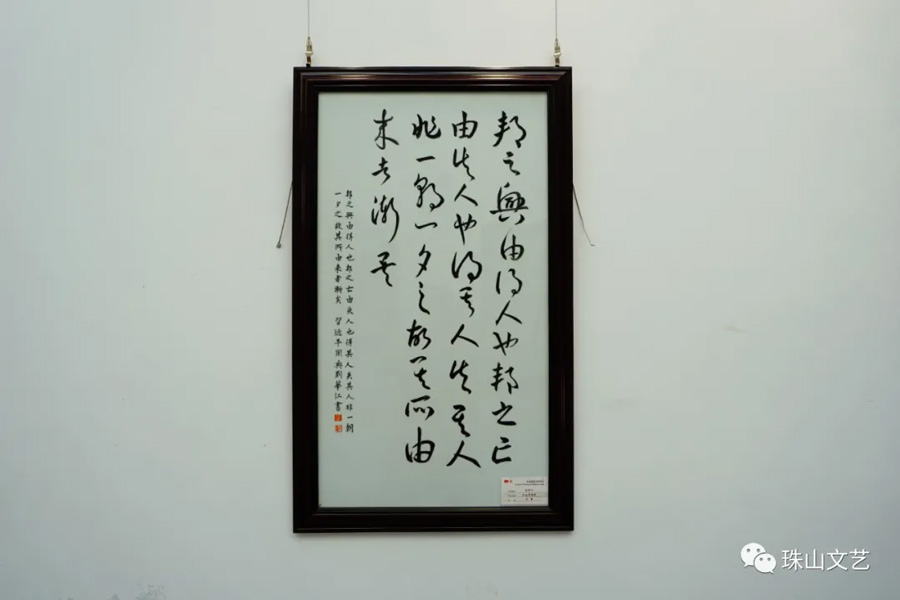 邦之興由得人也邦之亡
由失人也得其人失其人
非一朝一夕之故其所由
来者漸矣
邦之興由得人也邦之亡由失人也得其人失其人非一朝
一夕之故其所由来者漸矣 習近平用典劉華江書
珠山文艺